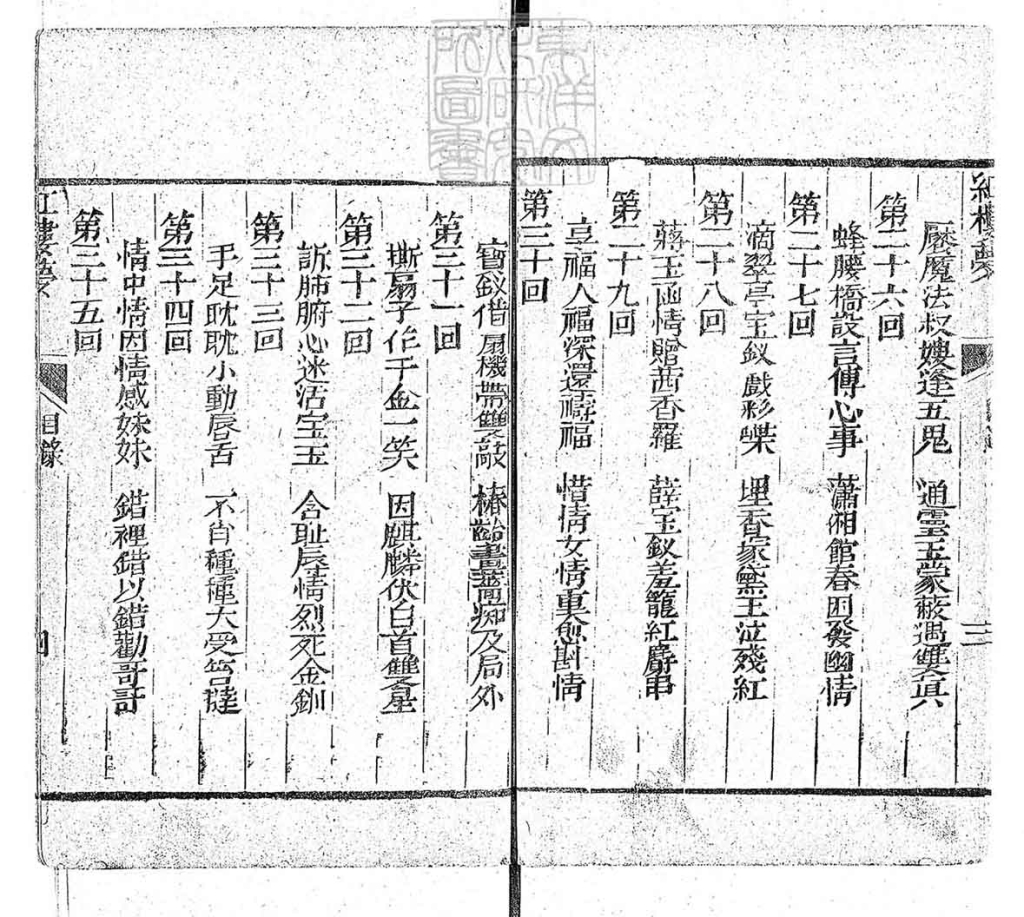 紅樓夢
三
魘魔法叔嫂逢五鬼 通靈玉蒙蔽遇雙真
第二十六回
蜂腰橋設言傳心事 瀟湘館春困發幽情
第二十七回
滴翠亭宝釵戲彩蝶 埋香塚黛玉泣殘紅
第二十八回
蔣玉函情贈茜香羅 薛宝釵羞籠紅麝串
第二十九回
享福人福深還禱福 惜情女情重愈斟情
第三十回
寶釵借扇機帶雙敲 椿齡畫薔痴及局外
第三十一回
撕扇子作千金一笑 因麒麟伏白首雙星
第三十二回
訴肺腑心迷活宝玉 含耻辱情烈死金釧
第三十三回
手足耽耽小動唇舌 不肖種種大受笞撻
第三十四回
情中情因情感妹妹 錯裡錯以錯勸哥哥
第三十五回
紅樓夢
目錄
四